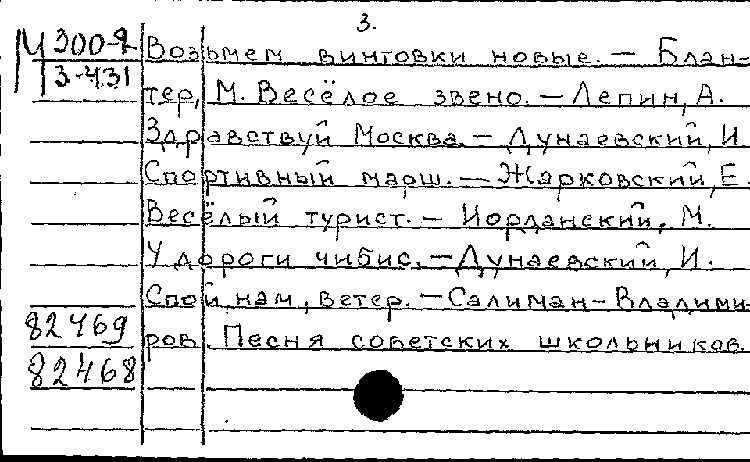 3.
М 300-2
3-431
Возьмем винтовки новые. —Блан-
тер, М. Весёлое звено. — Лепин, А.
Здравствуй Москва. — Дунаевский, И.
Спортивный марш. — Жарковский, Е.
Весёлый турист. — Иорданский, М.
У дороги чибис. — Дунаевский, И.
Спой нам, ветер. — Салиман-Владими-
82469
ров. Песня советских школьников.
82468